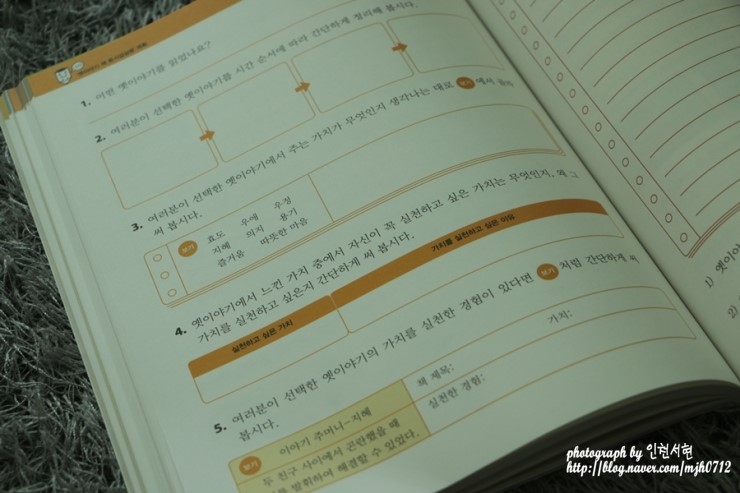 1. 어떤 옛이야기를 읽었나요?
2. 여러분이 선택한 옛이야기를 시간 순서에 따라 간단하게 정리해 봅시다.
3. 여러분이 선택한 옛이야기에서 주는 가치가 무엇인지 생각나는 대로 보기 에서 골라
써 봅시다.
보기
효도 우애 우정
지혜 의지 용기
즐거움 따뜻한 마음
4. 옛이야기에서 느낀 가치 중에서 자신이 꼭 실천하고 싶은 가치는 무엇인지, 왜 그
가치를 실천하고 싶은지 간단하게 써 봅시다.
실천하고 싶은 가치
가치를 실천하고 싶은 이유
5. 여러분이 선택한 옛이야기의 가치를 실천한 경험이 있다면 보기 처럼 간단하게 써
봅시다.
보기
이야기 주머니-지혜
두 친구 사이에서 곤란했을 때
를 발휘하여 해결할 수 있었다.
책 제목:
가치:
실천한 경험:
1) 옛이야
2)
photograph by 인천서현
http://blog.naver.com/mjh0712